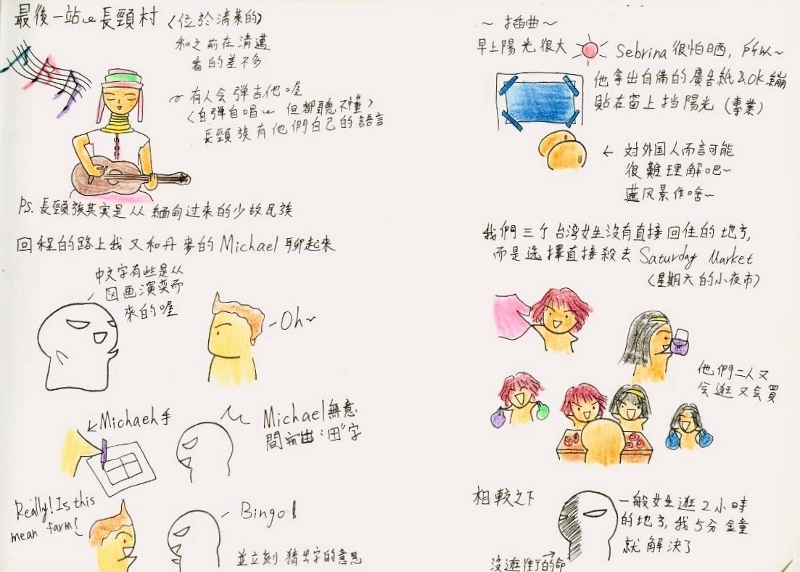 最後一站 長頸村 (位於清萊的)
和之前在清邁
看的差不多
有人会弹吉他喔
(自弹自唱 但都聽不懂)
長頸族有他們自己的語言
PS.長頸族其實是从緬甸过來的少數民族
回程的路上我又和丹麥的Michael聊起來
中文字有些是从
図画演变而
來的喔
-Oh~
Michael手
Michael無意
間画出"田"字
Really! Is this
mean farm?
Bingo!
並立刻猜出字的意思
~插曲~
早上陽光很大 Sebrina很怕晒,所以~
他拿出自備的廣告紙及OK繃
貼在窗上挡陽光(專業)
← 対外国人而言可能
很難理解吧~
遮風景作啥~
我們三个台湾女生沒有直接回住的地方,
而是选擇直接殺去Saturday Market
(星期六的小夜市)
他們二人又
会逛又会買
相較之下
一般女生逛2小時
的地方,我5分鐘
就解決了
沒逛街的命